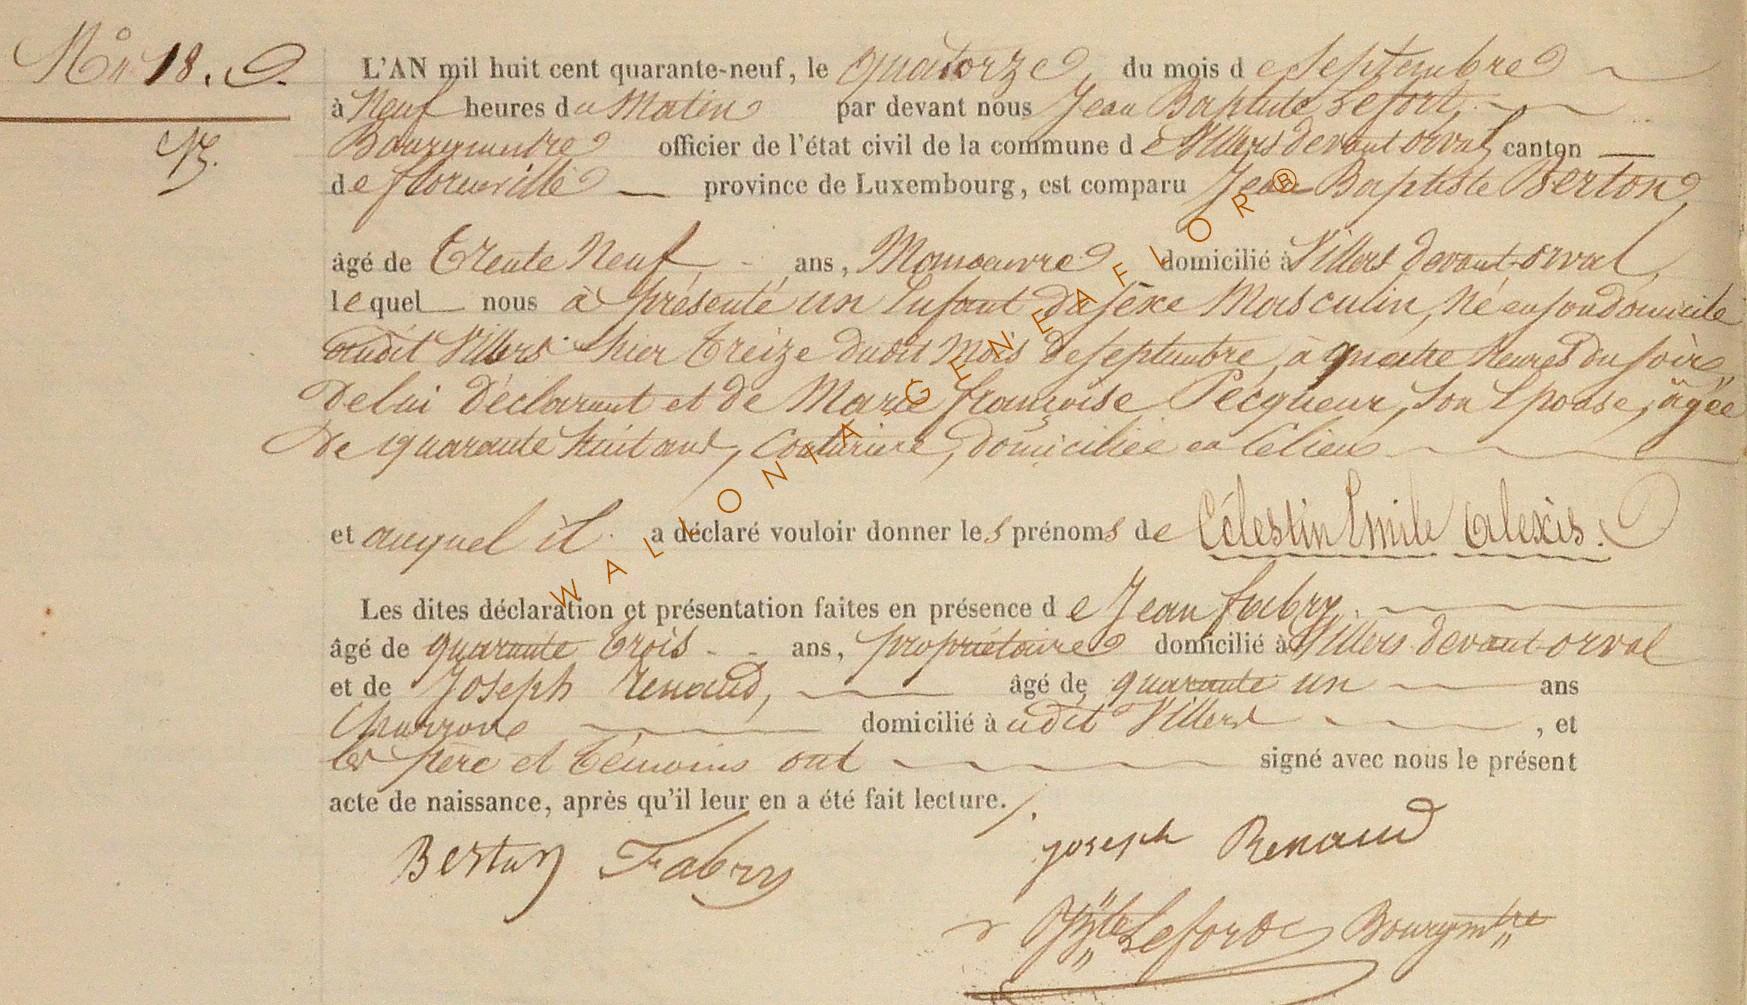 No 18.
L'AN mil huit cent quarante-neuf, le quatorze, du mois de Septembre
à Neuf heures du Matin par devant nous Jean Baptiste Lefort,
Bourgmestre officier de l'état civil de la commune de Villers devant orval canton
de florenville province de Luxembourg, est comparu Jean Baptiste Berton,
âgé de trente Neuf ans, Manoeuvre domicilié à Villers devant-orval,
lequel nous à présenté un Enfant du sexe Masculin, Né en son domicile
audit Villers hier treize dudit mois de septembre, à quatre heures du soir
de lui déclarant et de Marie françoise Pecqueur, son Epouse, âgée
de quarante huit ans, Couturière, domiciliée en ce lieu
et auquel il a déclaré vouloir donner les prénoms de Célestin Emile Alexis.
Les dites déclaration et présentation faites en présence de Jean fabry.
âgé de quarante trois ans, propriétaire domicilié à Villers devant-orval
et de Joseph Renaud, âgé de quarante un ans
Charron domicilié à udit Villers, et
les père et témoins ont signé avec nous le présent
acte de naissance, après qu'il leur en a été fait lecture.
Berton Fabry Joseph Renaud
Lefort Bourgmtre
WALLONIA GENEAFLOR ®